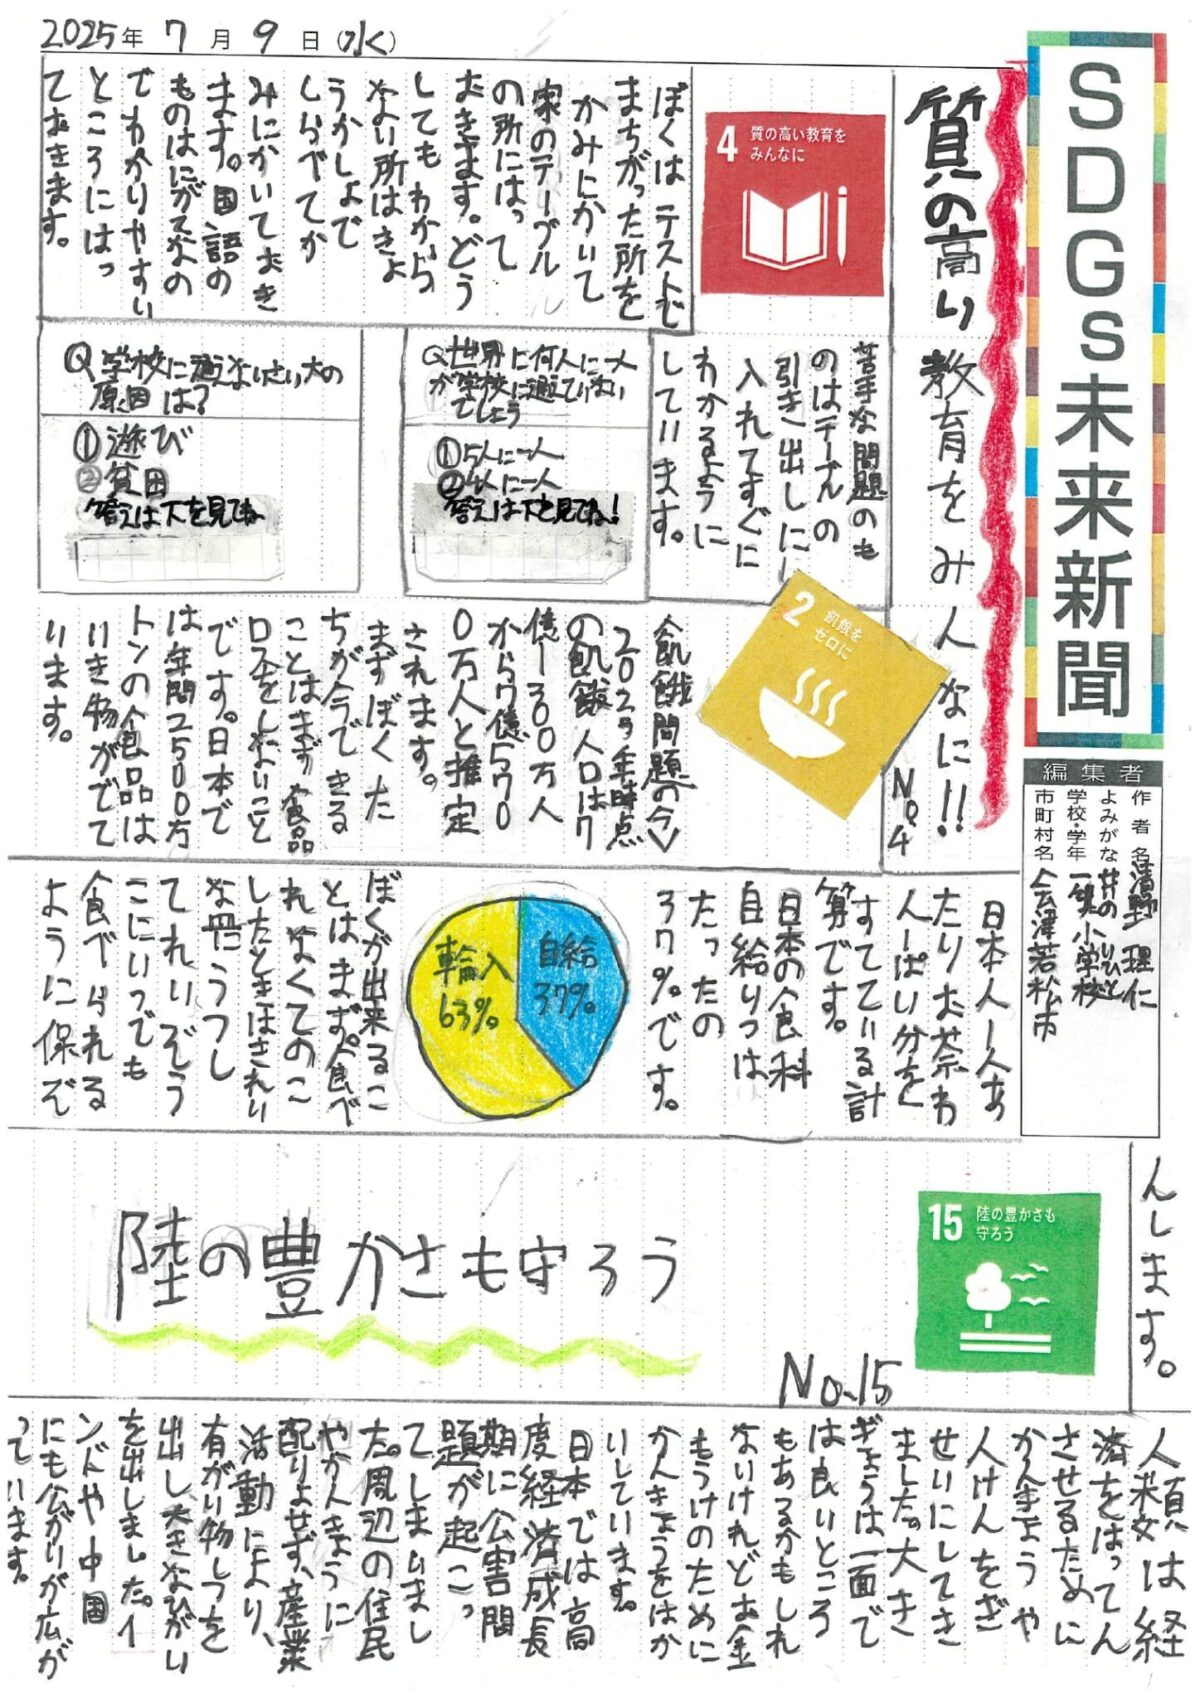 2025年7月9日(水)
SDGs未来新聞
編集者
作者名 清野 理仁
よみがな
学校・学年 一箕小学校
市町村名 会津若松市
質の高い教育をみんなに!!
No.4
4 質の高い教育を
みんなに
ぼくはテストで
まちがった所を
かみにかいて
家のテーブル
の所にはって
おきます。どう
してもわから
ない所はきょ
うかしょで
しらべてか
みにかいておき
ます。国語の
ものはにがてなの
でわかりやすい
ところにはっ
ておきます。
苦手な問題のも
のはテーブルの
引き出しに
入れてすぐに
わかるように
しています。
Q世界に何人に一人
が学校に通えていない
でしょう
①5人に一人
②4人に一人
答えは下を見てね!
Q学校に通えないさい大の
原因は?
①遊び
②貧困
答えは下を見てね
2 飢餓を
ゼロに
飢餓問題の今
2023年時点
の飢餓人口は7
億1300万人
から7億570
0万人と推定
されます。
まずぼくた
ちが今できる
ことはまず食品
ロスをしないこと
です。日本で
は年間2500万
トンの食品は
いき物がでて
います。
日本人1人あ
たりお茶わ
ん1ぱい分を
すてている計
算です。
日本の食料
自給りつは
たったの
37%です。
自給
37%
輸入
63%
ぼくが出来るこ
とはまず食べ
れなくてのこ
したときはきれい
な皿にうつし
てれいぞう
こにいつでも
食べられる
ように保ぞ
んします。
15 陸の豊かさも
守ろう
陸の豊かさも守ろう
No.15
人類は経
済をはってん
させるために
かんきょうや
人けんをぎ
せいにしてき
ました。大き
ぎょうは一面で
は良いところ
もあるかもしれ
ないけれどお金
もうけのために
かんきょうをはか
いしています。
日本では高
度経済成長
期に公害問
題が起こっ
てしまいまし
た。周辺の住民
やかんきょうに
配りょせず、産業
活動により、
有がい物しつを
出し、大きなひがい
を出しました。イ
ンドや中国
にも公がいが広が
っています。